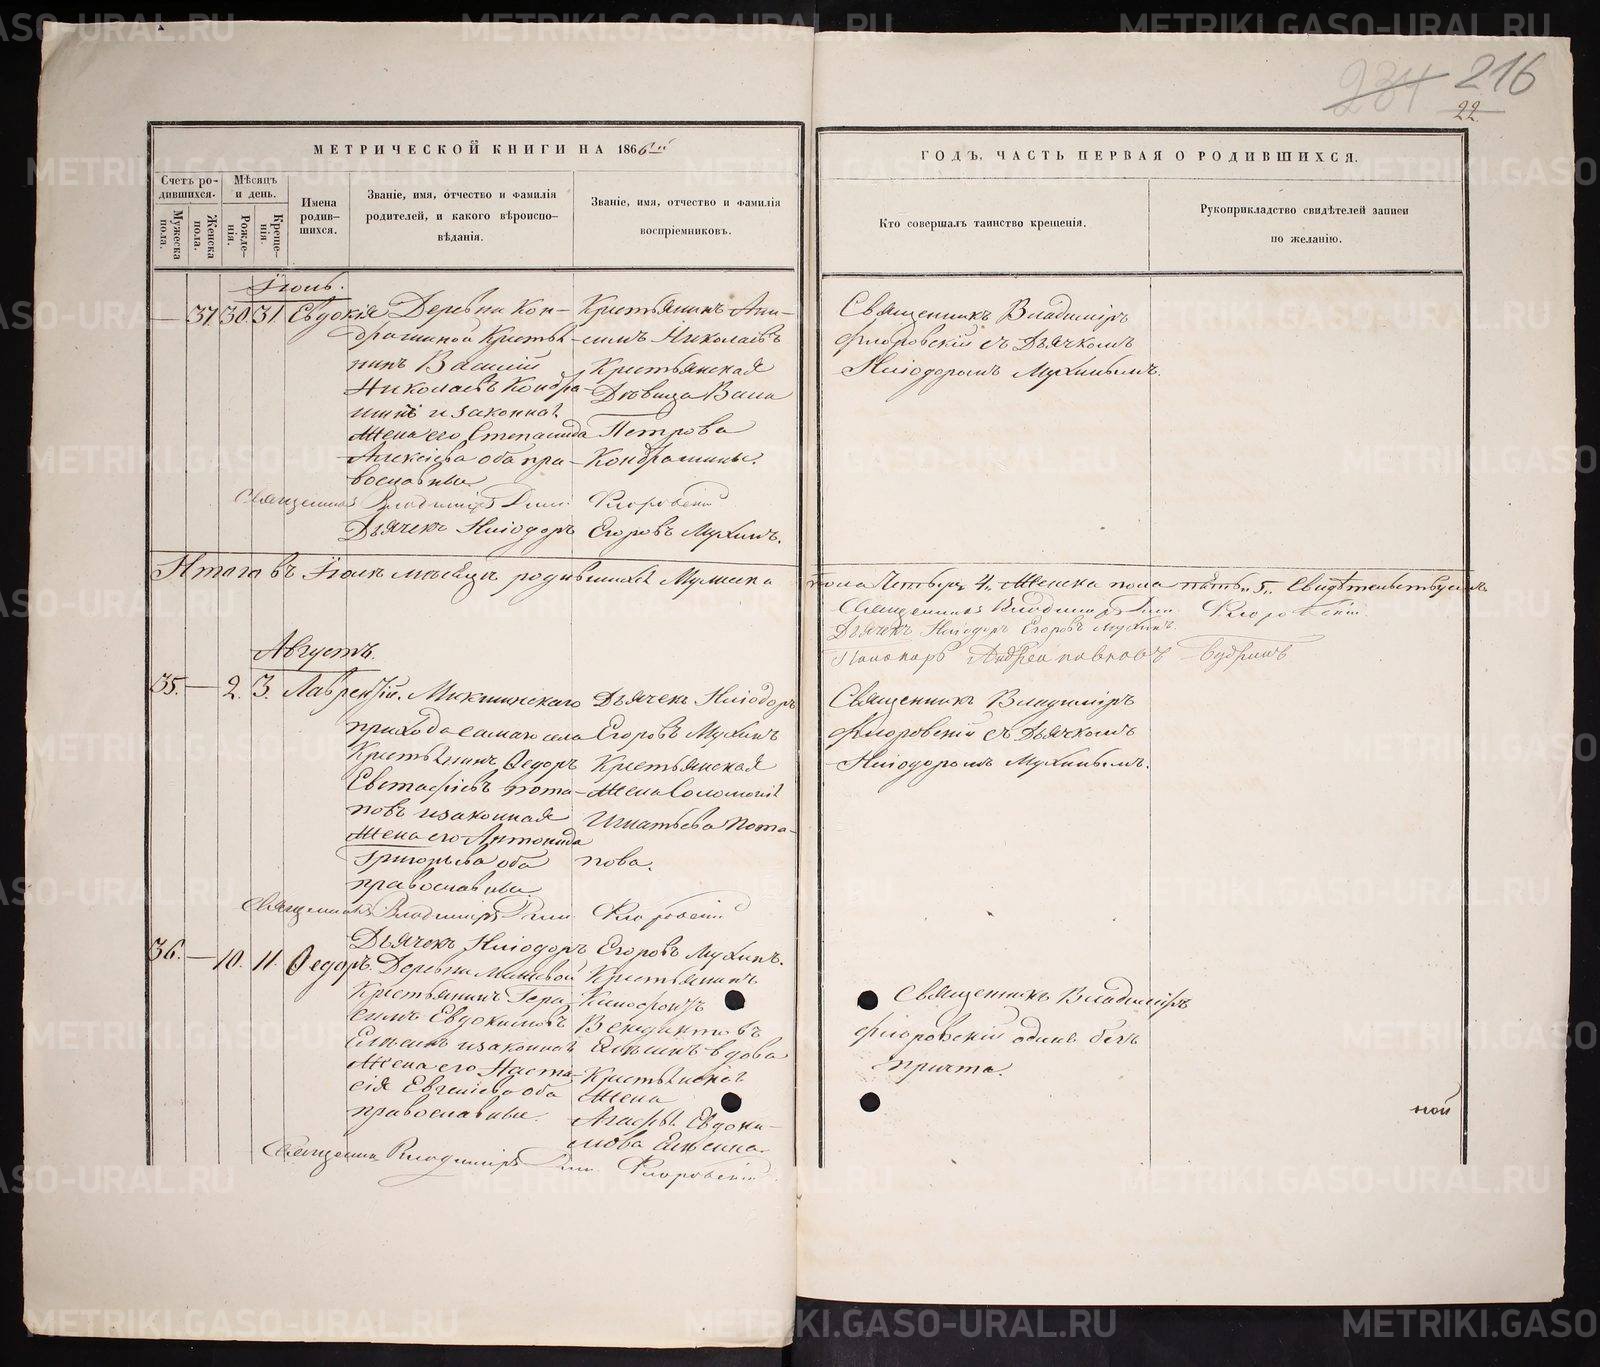 216
22.
МЕТРИЧЕСКОЙ КНИГИ НА 1866
ГОДЪ, ЧАСТЬ ПЕРВАЯ О РОДИВШИХСЯ.
Счетъ ро-
дившихся.
Мужеска
пола.
Женска
пола.
Мѣсяцъ
и день.
Рожде-
нія.
Креще-
нія.
Имена
родив-
шихся.
Званіе, имя, отчество и фамилія
родителей, и какого вѣроиспо-
вѣданія.
Званіе, имя, отчество и фамилія
воспріемниковъ.
Кто совершалъ таинство крещенія.
Рукоприкладство свидѣтелей записи
по желанію.
Іюль.
— 37 30 31 Евдокія
Деревни Кон-
драшиной Крестья
нинъ Василій
Николаевъ Кондра-
шинъ и законная
жена его Степанида
Алексіева оба пра-
вославные
Крестьянинъ
Николаевъ
Крестьянская
Дѣвица
Петрова
Кондрашины.
Священникъ Владиміръ
Флоровскій съ Дьячкомъ
Иліодоромъ Мухинымъ.
Священникъ Владиміръ Флоровскій
Дьячекъ Иліодоръ Егоровъ Мухинъ.
Итого въ Іюлѣ мѣсяцѣ родившихся Мужеска
пола Четверо 4. Женска пола пять 5. Свидѣтельствуемъ
Священникъ Владиміръ Флоровскій
Дьячекъ Иліодоръ Егоровъ Мухинъ
Пономарь Андрей Павловъ Будринъ
Августъ.
35. — 2. 3. Лаврентій.
прихода самаго села
Крестьянинъ Ѳедоръ
Евстафіевъ Пота-
повъ и законная
жена его Антонида
Григорьева оба
православные
Дьячекъ Иліодоръ
Егоровъ Мухинъ
Крестьянская
жена Соломонія
Игнатьева Пота-
пова.
Священникъ Владиміръ
Флоровскій съ Дьячкомъ
Иліодоромъ Мухинымъ.
Священникъ Владиміръ Флоровскій
Дьячекъ Иліодоръ Егоровъ Мухинъ.
36. — 10. 11. Ѳедоръ.
Деревни
Крестьянинъ Гера-
симъ Евдокимовъ
и законная
жена его Наста-
сія Евгеніева оба
православные.
Крестьянинъ
вдова
Крестьянская
жена
Агафья Евдоки-
мова
Священникъ Владиміръ
Флоровскій одинъ безъ
причта.
ной
Священникъ Владиміръ Флоровскій
METRIKI.GASO-URAL.RU